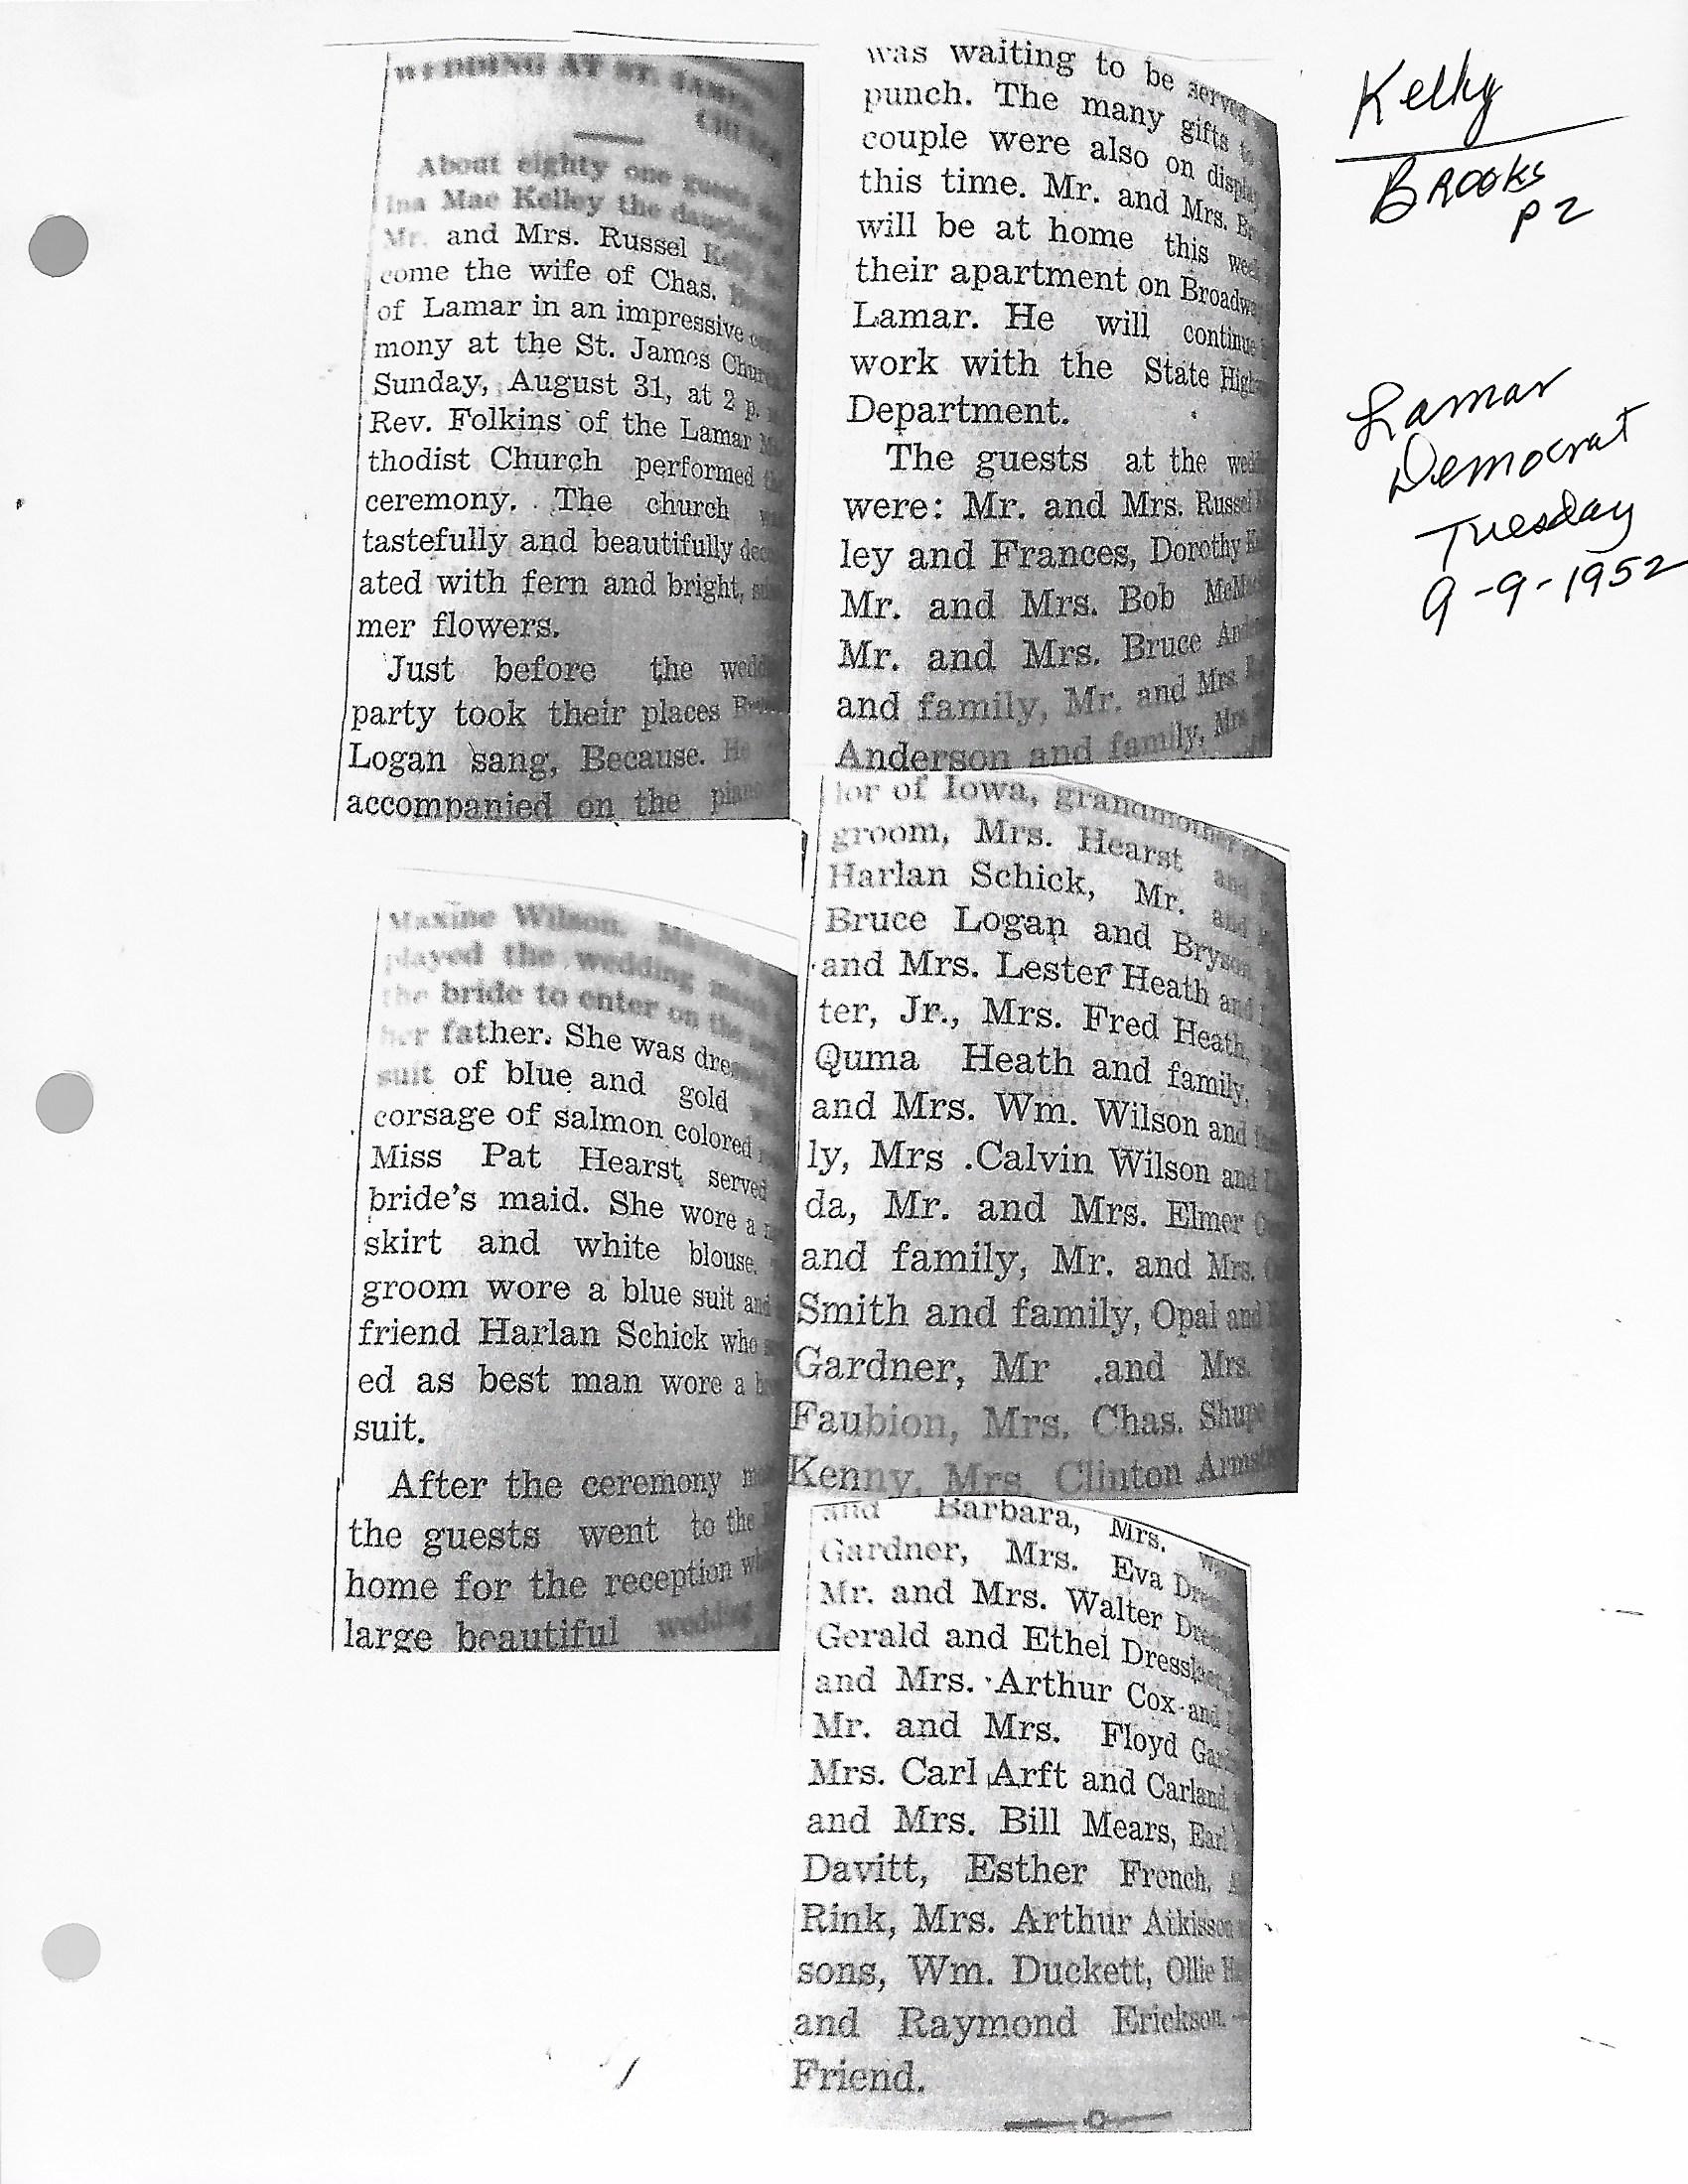 WEDDING AT ST. JAMES
About eighty one guests
Ina Mae Kelley the daughter of
Mr. and Mrs. Russel
come the wife of Chas.
of Lamar in an impressive
mony at the St. James
Sunday, August 31, at 2 p.
Rev. Folkins of the Lamar
thodist Church performed
ceremony. The church
tastefully and beautifully
ated with fern and bright,
mer flowers.
Just before the
party took their places
Logan sang, Because. He
accompanied on the
Maxine Wilson.
played the wedding
the bride to enter on the
her father. She was
suit of blue and gold
corsage of salmon colored
Miss Pat Hearst served
bride's maid. She wore a
skirt and white blouse.
groom wore a blue suit and
friend Harlan Schick who
ed as best man wore a
suit.
After the ceremony
the guests went to the
home for the reception
large beautiful wedding
was waiting to be
punch. The many gifts to
couple were also on display
this time. Mr. and Mrs.
will be at home this
their apartment on
Lamar. He will continue
work with the State
Department.
The guests at the
were: Mr. and Mrs. Russel
ley and Frances, Dorothy
Mr. and Mrs. Bob
Mr. and Mrs. Bruce
and family, Mr. and Mrs.
Anderson and family, Mrs
lor of Iowa, grandmother
groom, Mrs. Hearst and
Harlan Schick, Mr. and
Bruce Logan and Bryson,
and Mrs. Lester Heath and
ter, Jr., Mrs. Fred Heath,
Quma Heath and family,
and Mrs. Wm. Wilson and
ly, Mrs .Calvin Wilson and
da, Mr. and Mrs. Elmer
and family, Mr. and Mrs.
Smith and family, Opal and
Gardner, Mr .and Mrs.
Faubion, Mrs. Chas. Shupe
Kenny, Mrs Clinton
and Barbara, Mrs.
Gardner, Mrs. Eva
Mr. and Mrs. Walter
Gerald and Ethel Dressler,
and Mrs. Arthur Cox and
Mr. and Mrs. Floyd
Mrs. Carl Arft and Carland,
and Mrs. Bill Mears, Earl
Davitt, Esther French,
Rink, Mrs. Arthur Atkisson
sons, Wm. Duckett, Ollie
and Raymond Erickson.—
Friend.
Kelly
Brooks
P 2
Lamar
Democrat
Tuesday
9-9-1952